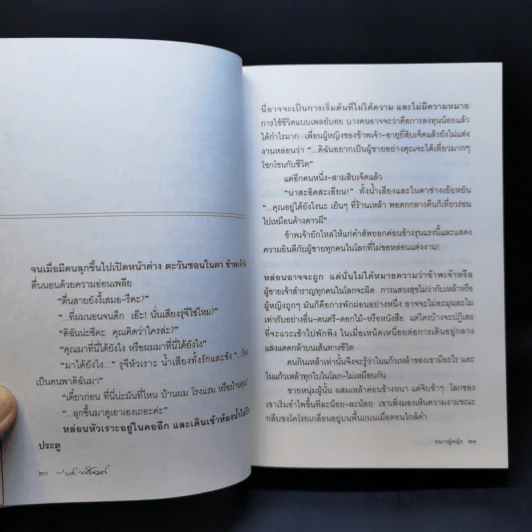 จนเมื่อมีคนลุกขึ้นไปเปิดหน้าต่าง ตะวันชอนในตา ข้าพเจ้าจึง
ตื่นนอนด้วยความอ่อนเพลีย
“ตื่นสายยังงี้เสมอ-รึคะ?”
“...ที่ผมนอนจนดึก เอ๊ะ! นั่นเสียงรุจีใช่ไหม?”
“ดิฉันน่ะซีคะ คุณคิดว่าใครล่ะ?”
“คุณมาที่นี่ได้ยังไง หรือผมมาที่นี่ได้ยังไง”
“มาได้ยังไง...” รุจีหัวเราะ น้ำเสียงทั้งรักและชัง “...ก็คุณ
เป็นคนพาดิฉันมา”
“เดี๋ยวก่อน ที่นี่น่ะมันที่ไหน บ้านผม โรงแรม หรือบ้านคุณ”
“...ลุกขึ้นมาดูเอาเองเถอะค่ะ”
หล่อนหัวเราะอยู่ในคออีก และเดินเข้าห้องน้ำไม่ปิด
ประตู
๒๐
นี่อาจจะเป็นการเริ่มต้นที่ไม่ได้ความ และไม่มีความหมาย
การใช้ชีวิตแบบเพลย์บอย บางคนอาจจะว่าคือการลงทุนน้อยแล้ว
ได้กำไรมาก เพื่อนผู้หญิงของข้าพเจ้า-อายุยี่สิบเจ็ดแล้วยังไม่แต่ง
งานหล่อนว่า “...ดิฉันอยากเป็นผู้ชายอย่างคุณจะได้เที่ยวมากๆ
โชกโชนกับชีวิต”
แต่อีกคนหนึ่ง-สามสิบเจ็ดแล้ว
“น่าสะอิดสะเอียน!” ทั้งน้ำเสียงและในตาช่างเย้ยหยัน
“...คุณอยู่ได้ยังไงนะ เย็นๆ ที่ร้านเหล้า พอตกกลางคืนก็เที่ยวร่อน
ไปเหมือนค้างคาวผี”
ข้าพเจ้ายักไหล่ให้แก่คำสัพยอกค่อนข้างรุนแรงนี้และแสดง
ความยินดีกับผู้ชายทุกคนในโลกที่ไม่ขอหล่อนแต่งงาน!
หล่อนอาจจะถูก แต่นั่นไม่ได้หมายความว่าข้าพเจ้าหรือ
ผู้ชายเจ้าสำราญทุกคนในโลกจะผิด การแสวงสุขไม่ว่ากับเหล้าหรือ
ผู้หญิงถูกๆ มันก็คือการพักผ่อนอย่างหนึ่ง อาจจะไม่ละมุนละไม
เท่ากับอย่างอื่น-ดนตรี-ดอกไม้-หรือหนังสือ แต่ใครบ้างจะปฏิเสธ
ที่จะแวะเข้าไปพักพิง ในเมื่อเหน็ดเหนื่อยต่อการเดินอยู่กลาง
แสงแดดกล้าบนเส้นทางชีวิต
คนกินเหล้าเท่านั้นจึงจะรู้ว่าในแก้วเหล้าของเขามีอะไร และ
ในแก้วเหล้าทุกใบในโลก-ไม่เหมือนกัน
ชายหนุ่มผู้นั้น ผสมเหล้าค่อนข้างหนา แต่จิบช้าๆ โลกของ
เขาเริ่มอำไพขึ้นทีละน้อย-ละน้อย เขาเพิ่งมองเห็นความงามขณะ
กลีบของโคโรยเกลื่อนอยู่บนพื้นถนนเมื่อตอนใกล้ค่ำ
หนาวผู้หญิง ๒๑